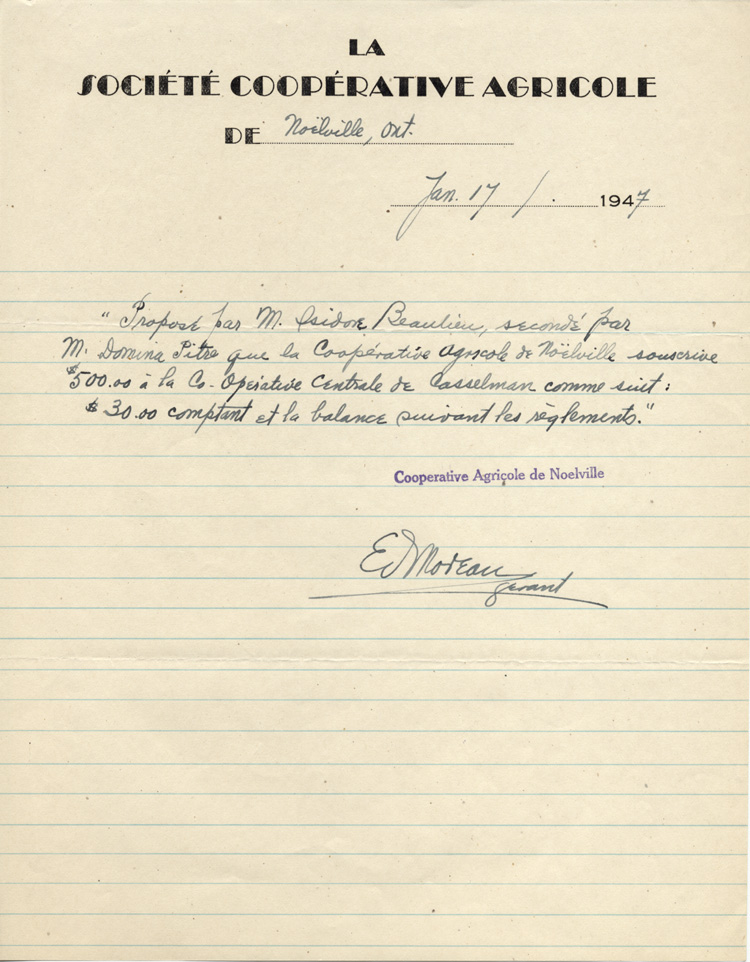 LA
SOCIÉTÉ COOPÉRATIVE AGRICOLE
DE Noëlville, Ont.
Jan. 17 / . 1947
" Proposé par M. Isidore Beaulieu, secondé par
M. Domina Pitre que la Coopérative Agricole de Noëlville souscrive
$500.00 à la Co-Opérative Centrale de Casselman comme suit :
$ 30.00 comptant et la balance suivant les règlements."
Cooperative Agricole de Noelville
Ed Moreau
gérant